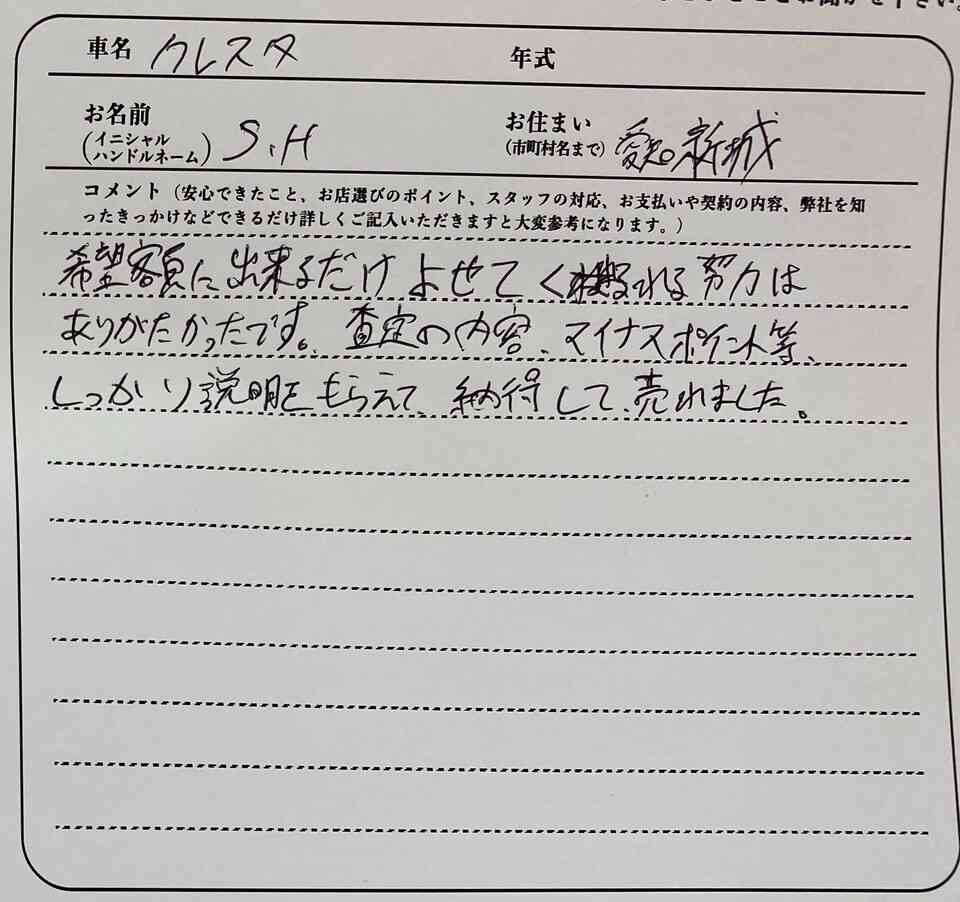 お聞かせ下さい。
車名 クレスタ 年式
お名前 (イニシャル ハンドルネーム) S,H お住まい (市町村名まで) 愛知 新城
コメント（安心できたこと、お店選びのポイント、スタッフの対応、お支払いや契約の内容、弊社を知
ったきっかけなどできるだけ詳しくご記入いただきますと大変参考になります。）
希望額に出来るだけよせてくれる努力は
ありがたかったです。査定の内容、マイナスポイント等、
しっかり説明をもらえて、納得して、売れました。